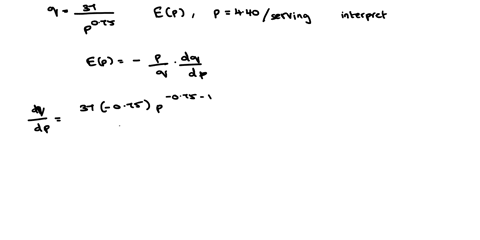 q = 37 / p^0.75   E(p) , p = 4.40 /serving   interpret
E(p) = - p/q · dq/dp
dq/dp = 37 (-0.75) p^-0.75-1